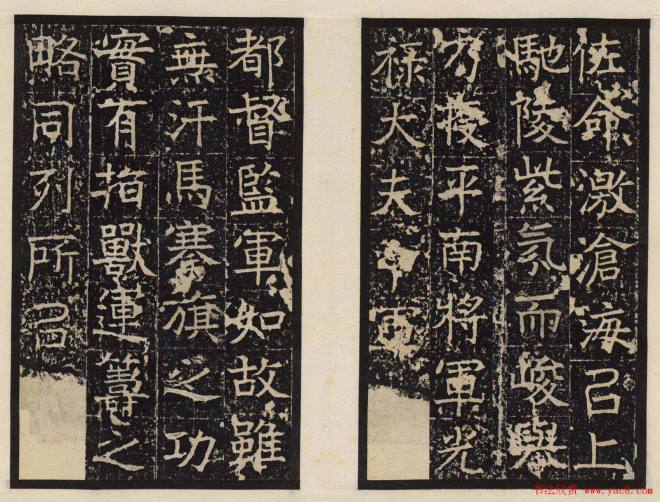 佐命激滄海㠯上
馳陵紫氛而峻舉
方授平南將軍光
祿大夫中軍
都督監軍如故雖
無汗馬搴旗之功
實有指獸運籌之
略同列所㠯
书法欣赏 www.yac8.com